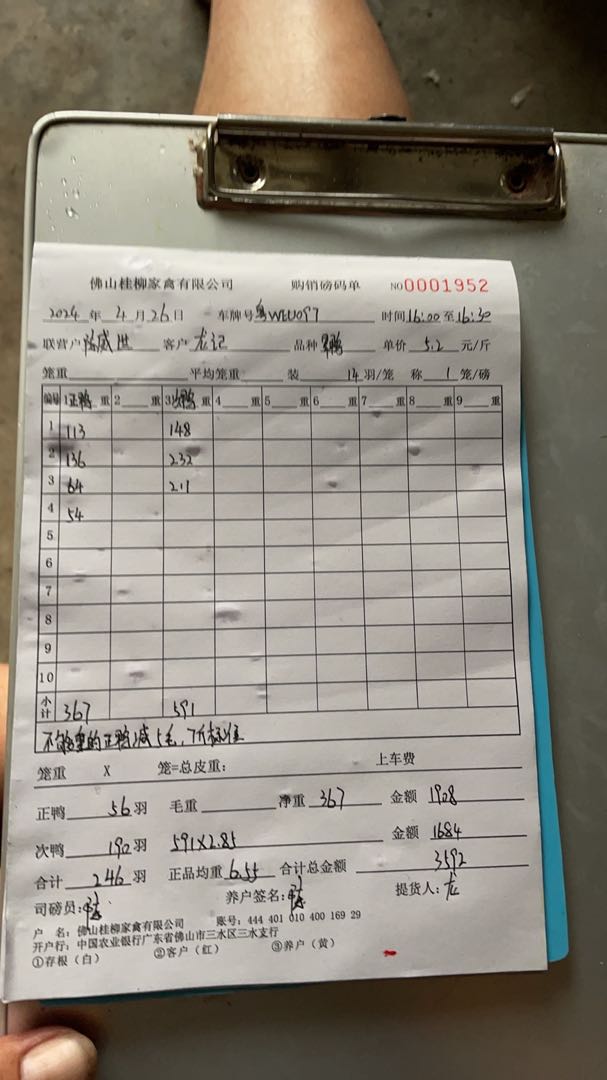 佛山桂柳家禽有限公司 购销磅码单 NO 0001952
2024 年 4 月 26 日 车牌号 粤WEU097 时间 16:00 至 16:30
联营户 威 客户 龙记 品种 鸭 单价 5.2 元/斤
笼重 平均笼重 装 14 羽/笼 称 1 笼/磅
编号 1 正鸭 重 2 重 3 次鸭 重 4 重 5 重 6 重 7 重 8 重 9 重
1 113 148
2 136 232
3 64 211
4 54
5
6
7
8
9
10
小计 367 591
不够重的正鸭减5毛,7斤标准
笼重 X 笼=总皮重: 上车费
正鸭 56 羽 毛重 净重 367 金额 1908
次鸭 190 羽 591×2.85 金额 1684
合计 246 羽 正品均重 6.55 合计总金额 3592
司磅员: 养户签名: 提货人: 龙
户 名: 佛山桂柳家禽有限公司 账号: 444 401 010 400 169 29
开户行: 中国农业银行广东省佛山市三水区三水支行
①存根(白) ②客户(红) ③养户(黄)